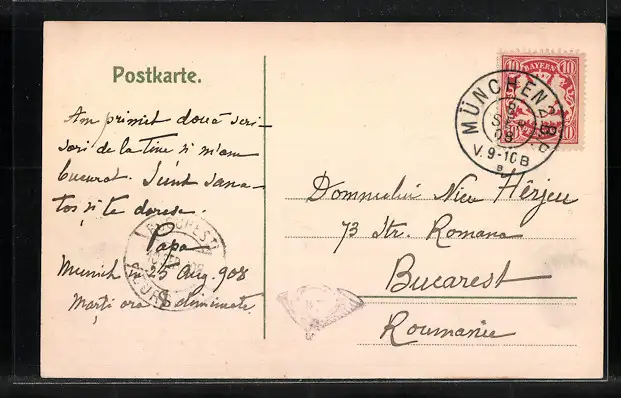 Postkarte.
Am primit două scri-
sori de la tine si m'am
bucurat. Sunt sana-
tos si te doresc.
Papa
Munich in 25 Aug. 908
Marți ora 8 dimineata.
BAYERN
10 10
MÜNCHEN 2 B.P.
SEP
08
V. 9-10 B
BUCURESTI
Domnului Nicu
73 Str. Romana
Bucarest
Roumanie